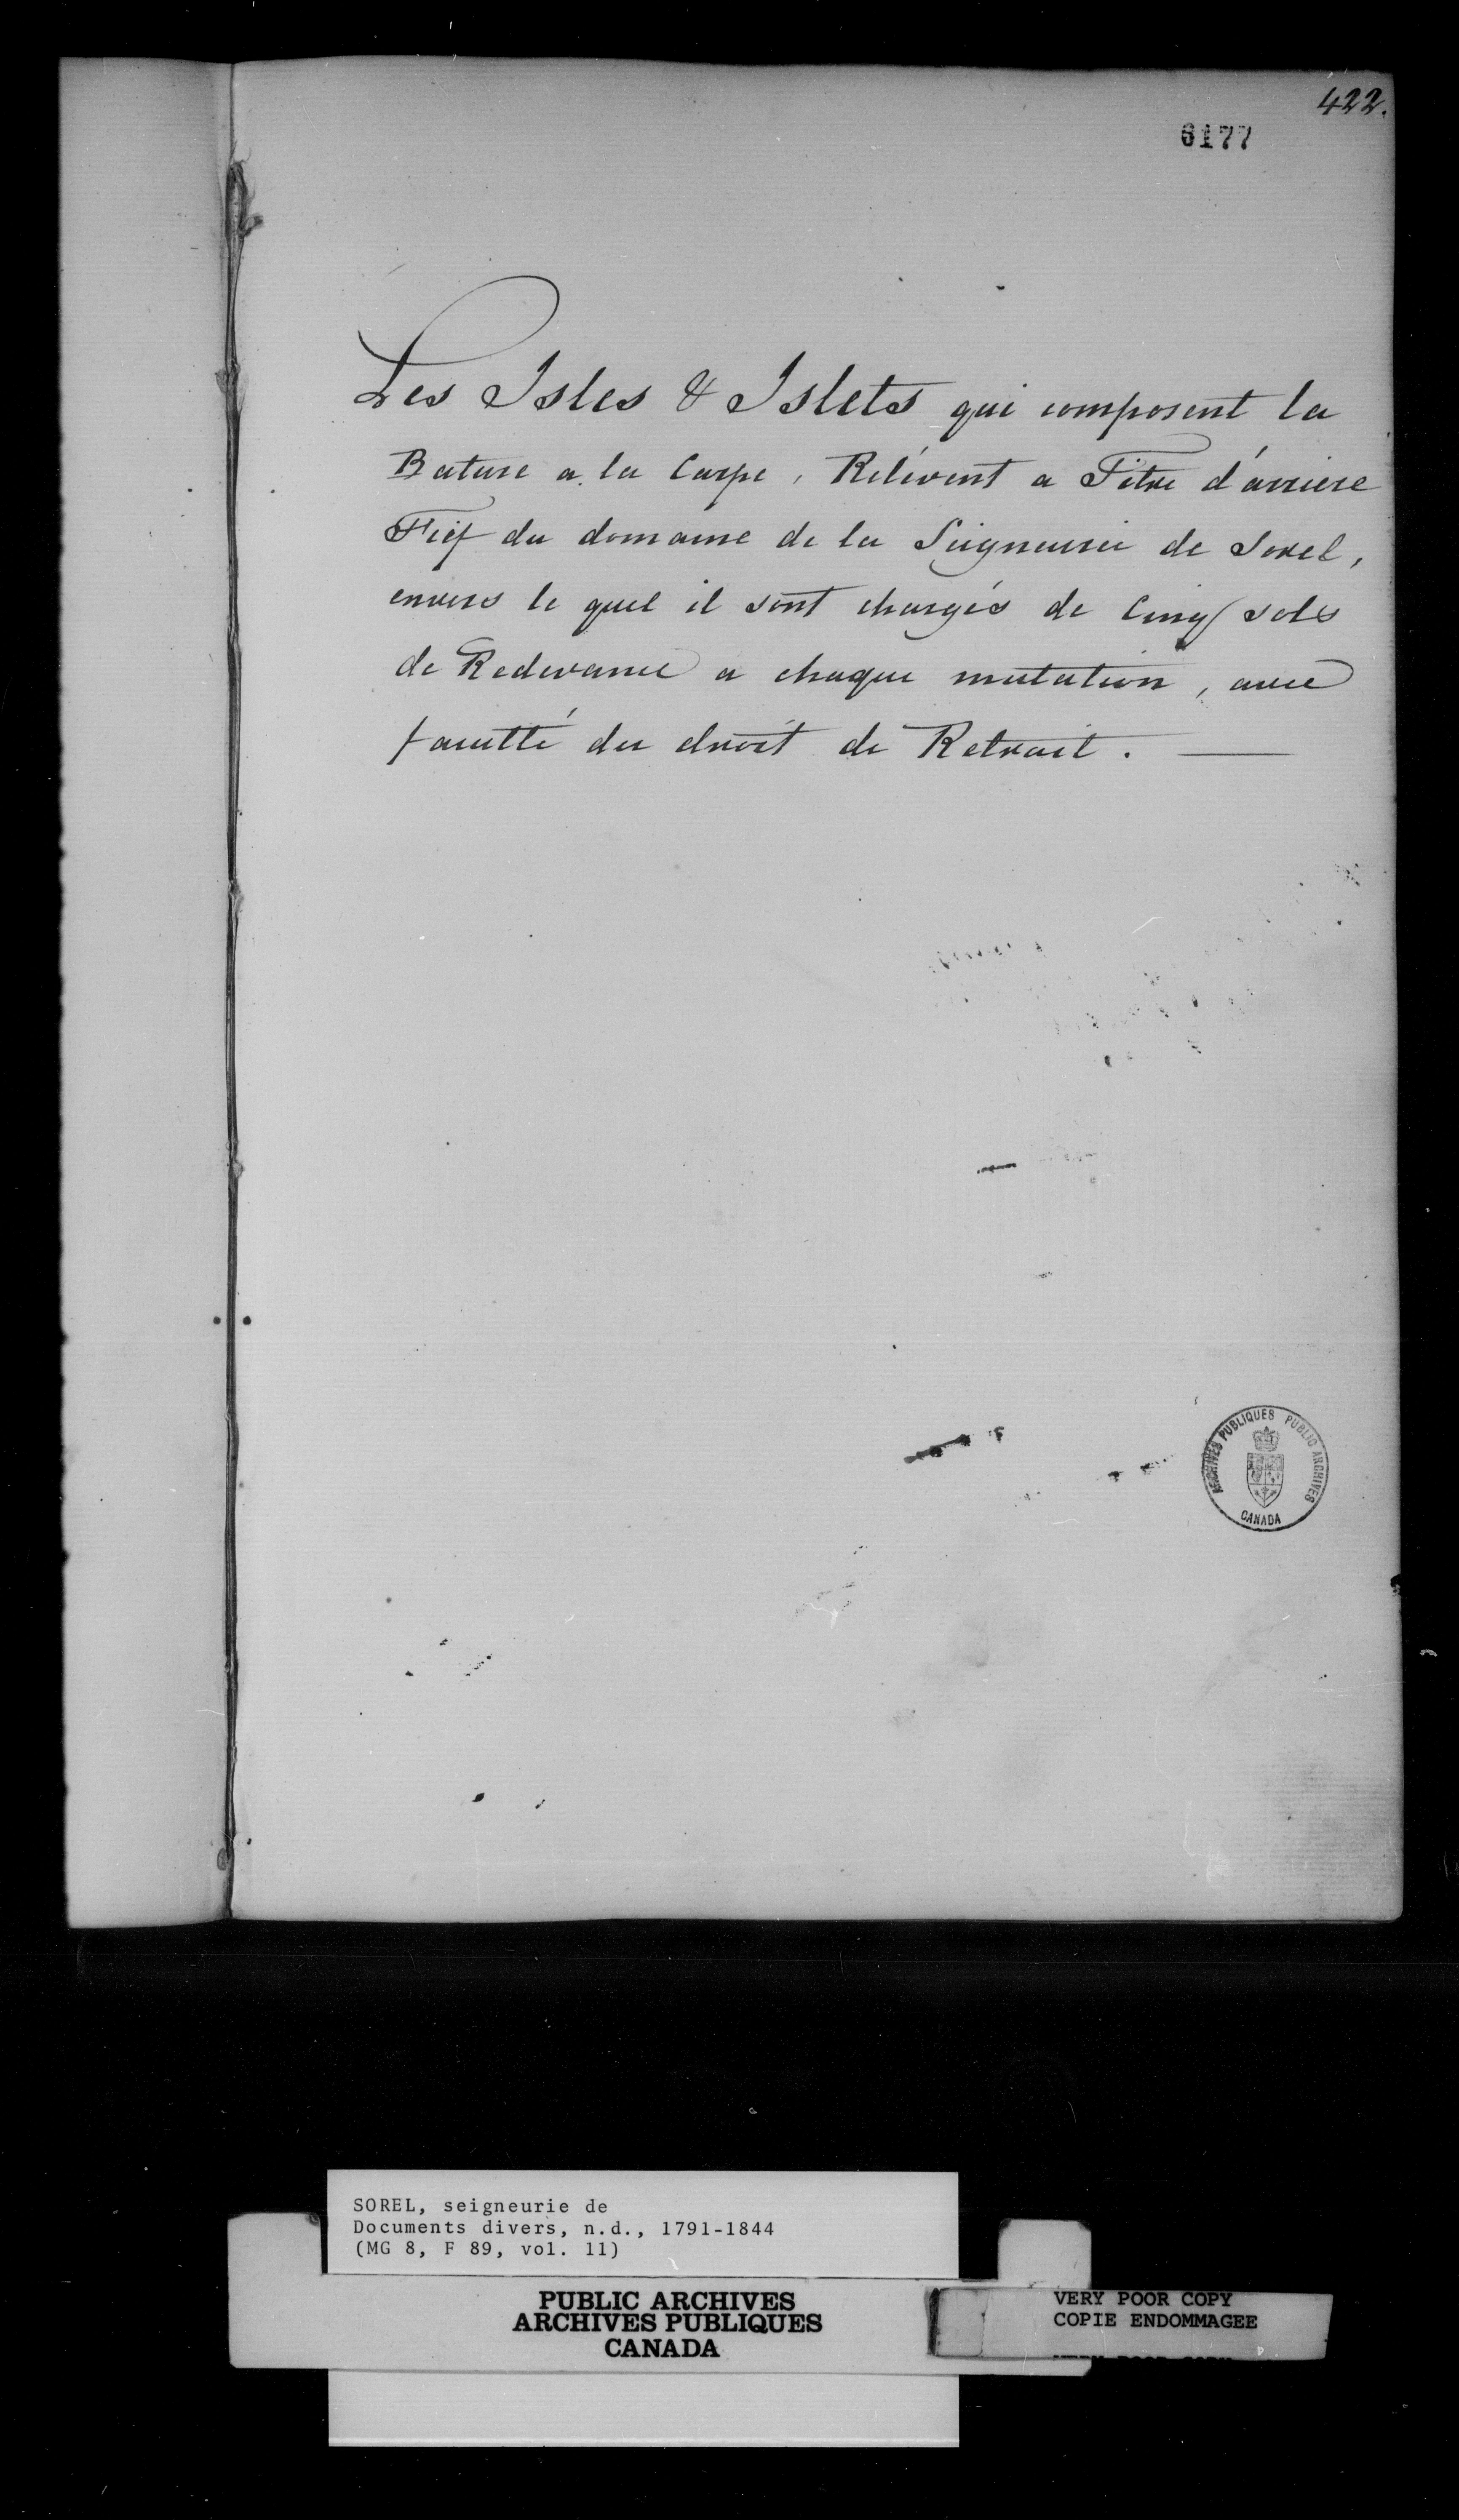 422.
6177
Les Isles & Islets qui composent la
Bature a la Carpe, Relévent a Titre d'arriere
Fief du domaine de la Seigneurie de Sorel,
envers le quel il sont chargés de Cinq sols
de Redevance a chaque mutation, avec
faculté du droit de Retrait.
ARCHIVES PUBLIQUES PUBLIC ARCHIVES
CANADA
SOREL, seigneurie de
Documents divers, n.d., 1791-1844
(MG 8, F 89, vol. 11)
PUBLIC ARCHIVES
ARCHIVES PUBLIQUES
CANADA
VERY POOR COPY
COPIE ENDOMMAGEE